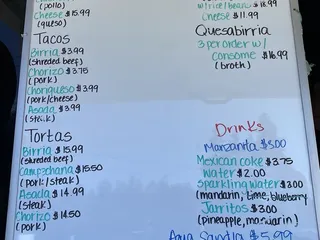 (pollo)
Cheese $15.99
(queso)
Tacos
Birria $3.99
(shredded beef)
Chorizo $3.75
(pork)
Chorigueso $3.99
(pork/cheese)
Asada $3.99
(steak)
Tortas
Birria $15.99
(shredded beef)
Campechana $15.50
(pork/steak)
Asada $14.99
(steak)
Chorizo $14.50
(pork)
w/rice/beans $18.99
Cheese $11.99
Quesabirria
3 per order w/
Consome $16.99
(broth)
Drinks
Manzanita $3.00
Mexican coke $3.75
Water $2.00
Sparkling water $3.00
(mandarin, lime, blueberry
Jarritos $3.00
(pineapple, mandarin)
Agua Sandia $5.99